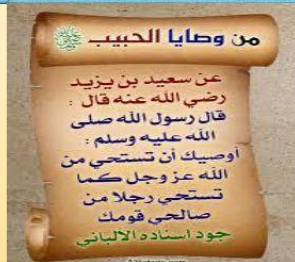 من وصايا الحبيب ﷺ
عن سعيد بن يزيد
رضي الله عنه قال :
قال رسول الله صلى
الله عليه وسلم :
أوصيك أن تستحي من
الله عز وجل كما
تستحي رجلا من
صالحي قومك
جود اسناده الألباني